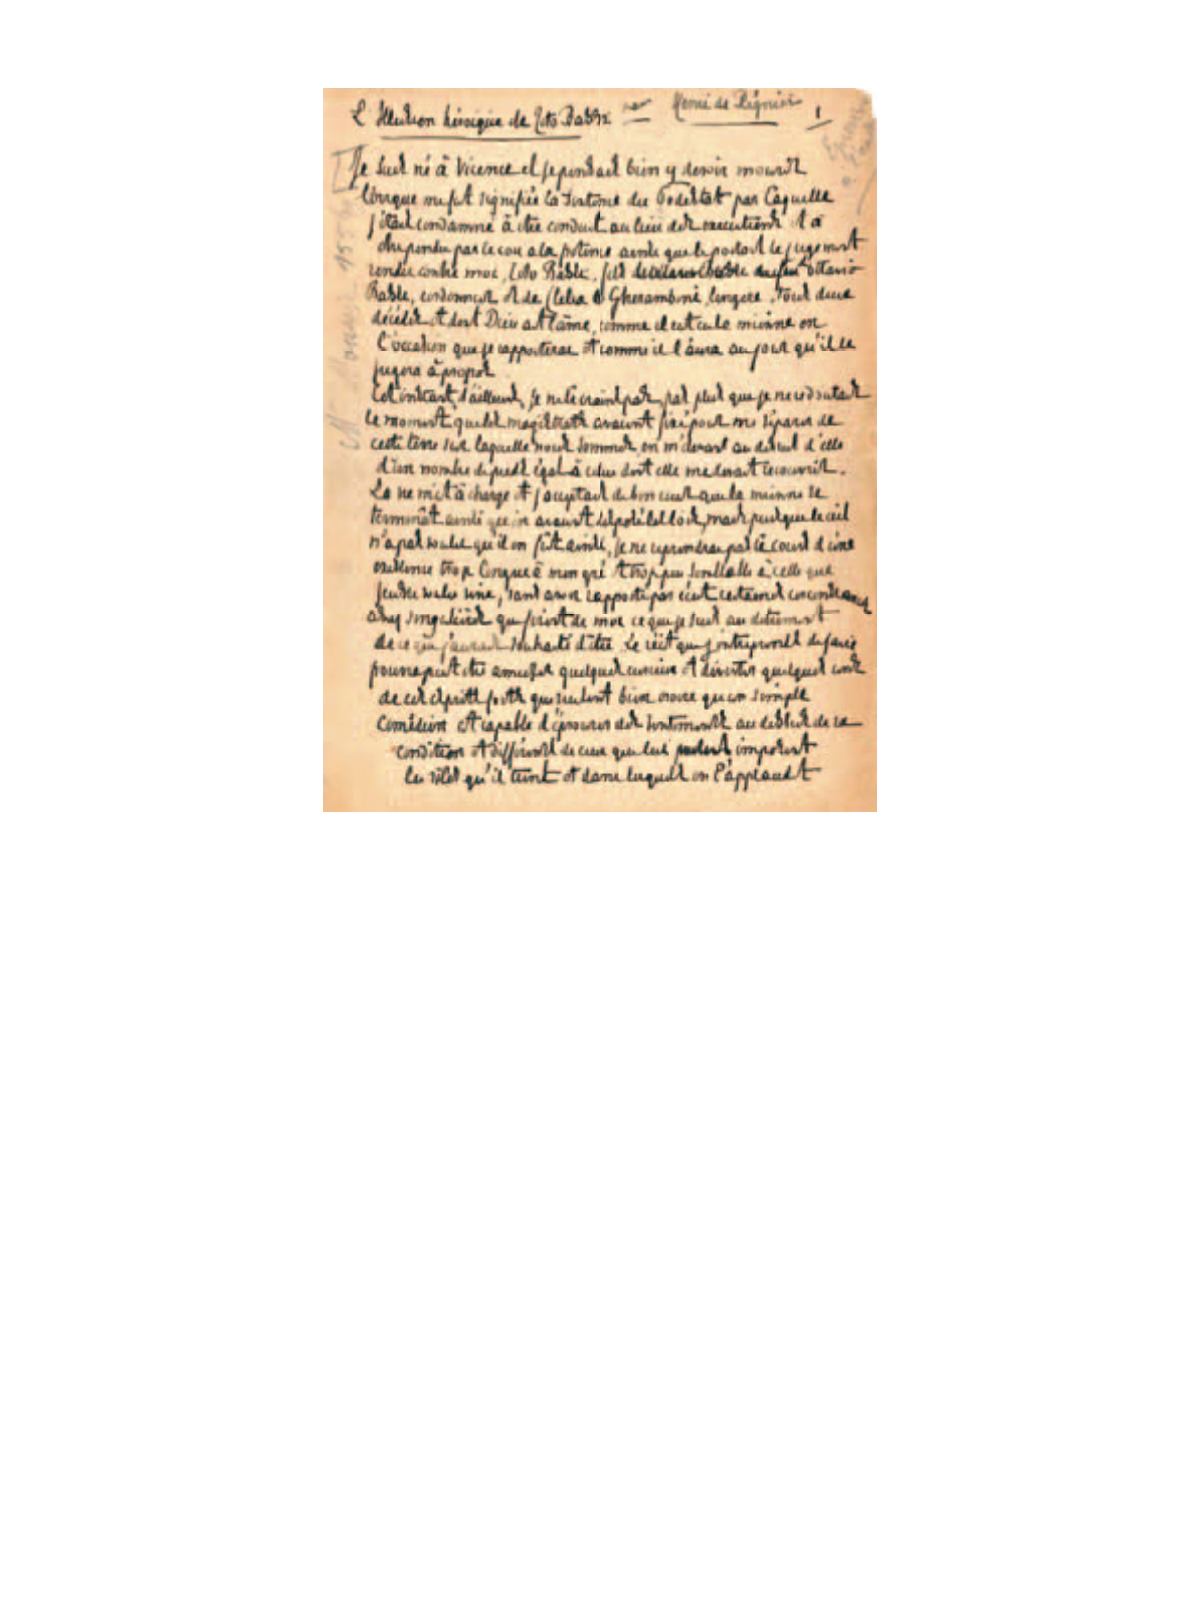 L'Illusion héroïque de Tito Bassi par Henri de Régnier 1
Je suis né à Vicence et je pensais bien y devoir mourir
lorsque me fut signifiée la sentence du Podestat par laquelle
j'étais condamné à être conduit au lieu des exécutions et à
être pendu par le cou à la potence ainsi que le portait le jugement
rendu contre moi, Tito Bassi, fils Ottavio
Bassi, cordonnier et de Clelia Gherambini, lingère. Tous deux
décédés et dont Dieu ait l'âme, comme il eut cru la mienne en
l'occasion que je rapporterai et comme il l'aura au jour qu'il le
jugera à propos.
Cet instant, d'ailleurs, je ne le crains pas, pas plus que je ne redoutais
le moment que les magistrats avaient fixé pour me séparer de
cette terre sur laquelle nous sommes, en m'élevant au dessus d'elle
d'un nombre de pieds égal à celui dont elle me devait recouvrir.
La vie m'est à charge et j'acceptais de bon cœur que la mienne se
terminât ainsi qu'en avaient disposé les lois, mais puisque le ciel
n'a pas voulu qu'il en fût ainsi, je ne reprendrai pas le cours d'une
existence trop longue à mon gré et trop peu semblable à celle que
j'eusse voulu vivre, sans avoir rapporté par écrit certaines circonstances
assez singulières qui firent de moi ce que je suis au détriment
de ce que j'aurais souhaité d'être. Le récit que j'entreprends de faire
pourra peut être amuser quelques curieux et divertir quelques uns
de ces esprits forts qui veulent bien croire qu'un simple
comédien est capable d'éprouver des sentiments au dessus de sa
condition et différents de ceux que lui imposent
les rôles qu'il tient et dans lesquels on l'applaudit